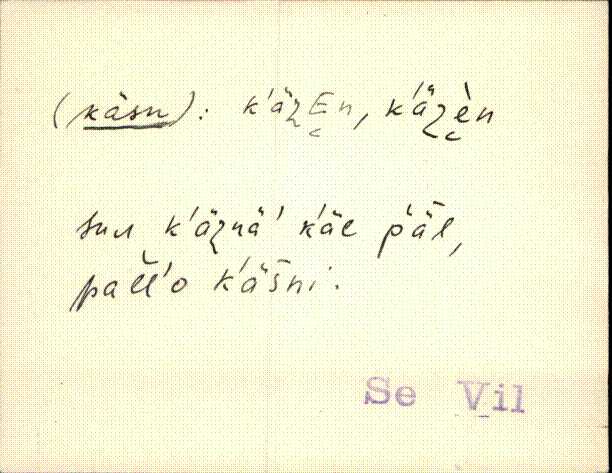 (käsn): k'äzEn, k'äzèn
sun k'äznä' k'äl p'äl,
pall'o k'äšni.
Se Vil